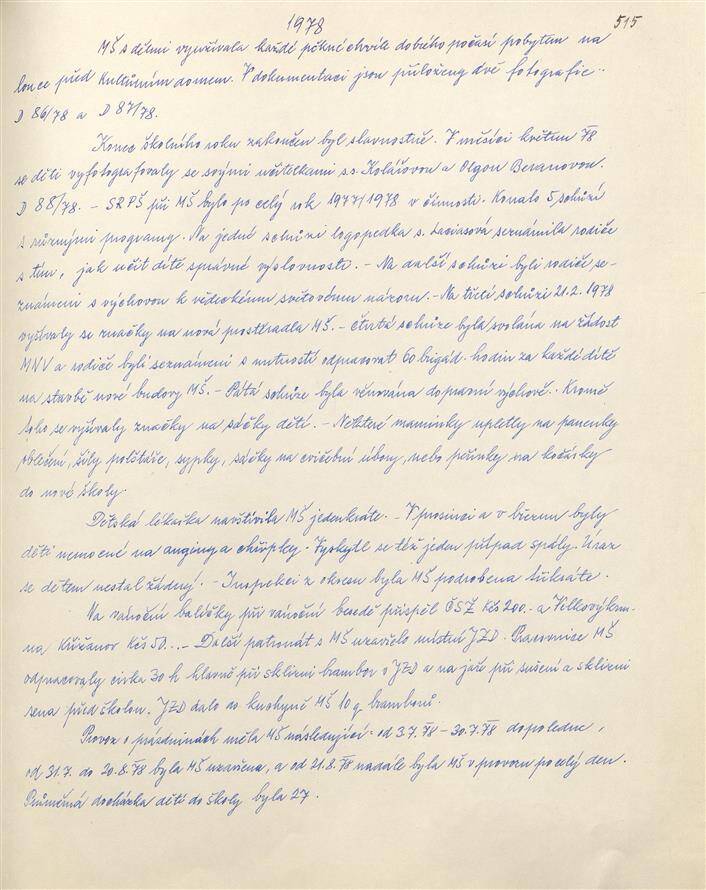 1978
515
MŠ s dětmi využívala každé pěkné chvíle dobrého počasí pobytem na
louce před Kulturním domem. V dokumentaci jsou přiloženy dvě fotografie..
D 86/78 a D 87/78.
Konec školního roku zakončen byl slavnostně. V měsíci květnu 78
se děti vyfotografovaly se svými učitelkami s.s. Kolářovou a Olgou Beranovou.
D 88/78. – SRPŠ při MŠ bylo po celý rok 1977/1978 v činnosti. Konalo 5 schůzí
s různými programy. Na jedné schůzi logopedka s. seznámila rodiče
s tím, jak učit dítě správné výslovnosti. – Na další schůzi byli rodiče se-
známeni s výchovou k vědeckému světovému názoru. – Na třetí schůzi 21.2.1978
vyšívaly se značky na nová prostěradla MŠ. – čtvrtá schůze byla svolána na žádost
MNV a rodiče byli seznámeni s nutností odpracovat 60 brigád. hodin za každé dítě
na stavbě nové budovy MŠ. – Pátá schůze byla věnována dopravní výchově. Kromě
toho se vyšívaly značky na sáčky dětí. – Některé maminky upletly na panenky
oblečení, šily polštáře, sypky, sáčky na cvičební úbory, nebo peřinky na kočárky
do nové školy.
Dětská lékařka navštívila MŠ jedenkráte. – V prosinci a v březnu byly
děti nemocné na anginy a chřipky. Vyskytl se též jeden případ spály. Úraz
se dětem nestal žádný. – Inspekci z okresu byla MŠ podrobena třikráte.
Na vánoční balíčky při vánoční besedě přispěl ČSŽ Kčs 200.- a Velkovýkrm-
na Křižanov Kčs 50... – Další patronát s MŠ uzavřelo místní JZD. Pracovnice MŠ
odpracovaly cirka 30 h hlavně při sklizni brambor v JZD a na jaře při sušení a sklizni
sena před školou. JZD dalo do kuchyně MŠ 10 q brambor.
Provoz o prázdninách měla MŠ následující: od 3.7.78 – 30.7.78 dopoledne,
od 31.7. do 20.8.78 byla MŠ uzavřena, a od 21.8.78 nadále byla MŠ v provozu po celý den.
Průměrná docházka dětí do školy byla 27.